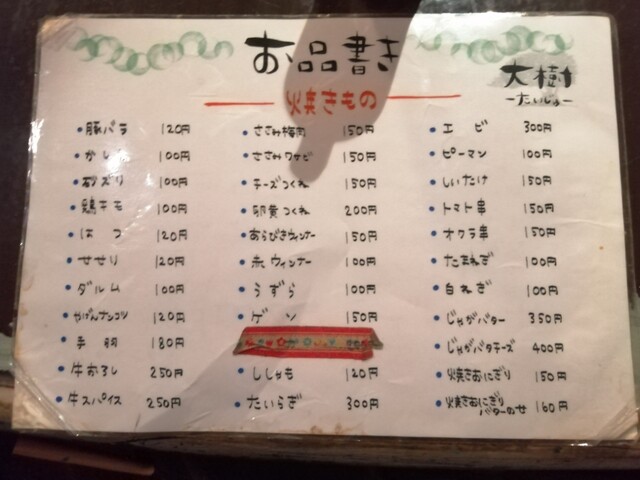 お品書き
大樹
ーたいじゅー
焼きもの
・豚バラ 120円
・かしわ 100円
・砂ズリ 100円
・鶏キモ 100円
・はつ 120円
・せせり 120円
・ダルム 100円
・やげんナンコツ 120円
・手羽 180円
・牛おろし 250円
・牛スパイス 250円
・ささみ梅肉 150円
・ささみワサビ 150円
・チーズつくね 150円
・卵黄つくね 200円
・あらびきウィンナー 150円
・赤ウィンナー 100円
・うずら 100円
・ゲソ 150円
・ししゃも 120円
・たいらぎ 300円
・エビ 300円
・ピーマン 100円
・しいたけ 150円
・トマト串 150円
・オクラ串 150円
・たまねぎ 100円
・白ねぎ 100円
・じゃがバター 350円
・じゃがバタチーズ 400円
・焼きおにぎり 150円
・焼きおにぎり
バターのせ 160円